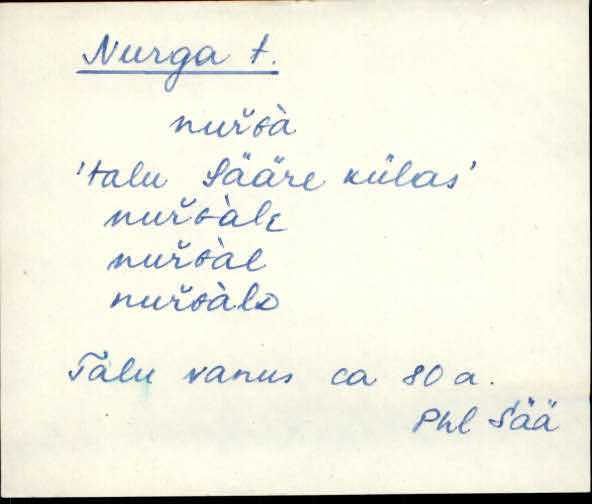 Nurga t.
nuřɢà
'talu Sääre külas'
nuřɢàlᴇ
nuřɢàl
nuřɢàlᴅ
Talu vanus ca 80 a.
Phl Sää